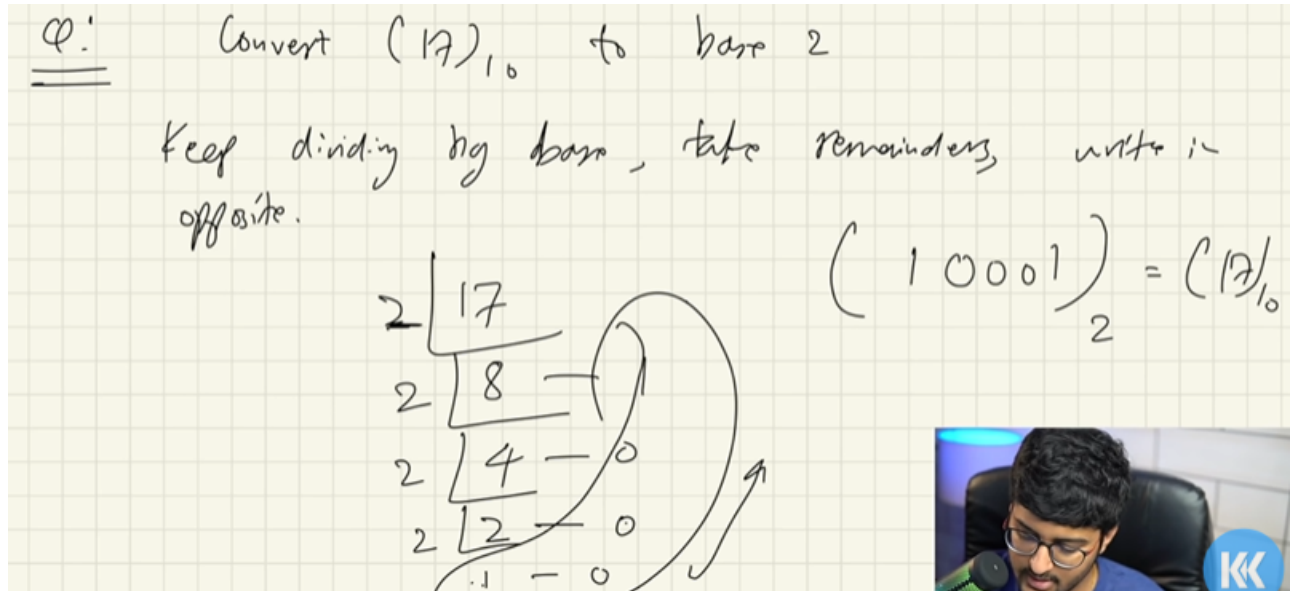 Q: Convert (17)10 to base 2
Keep dividing by base, take remainders, write in
opposite.
(10001)2 = (17)10
2 17
2 8 — 1
2 4 — 0
2 2 — 0
1 — 0
KK